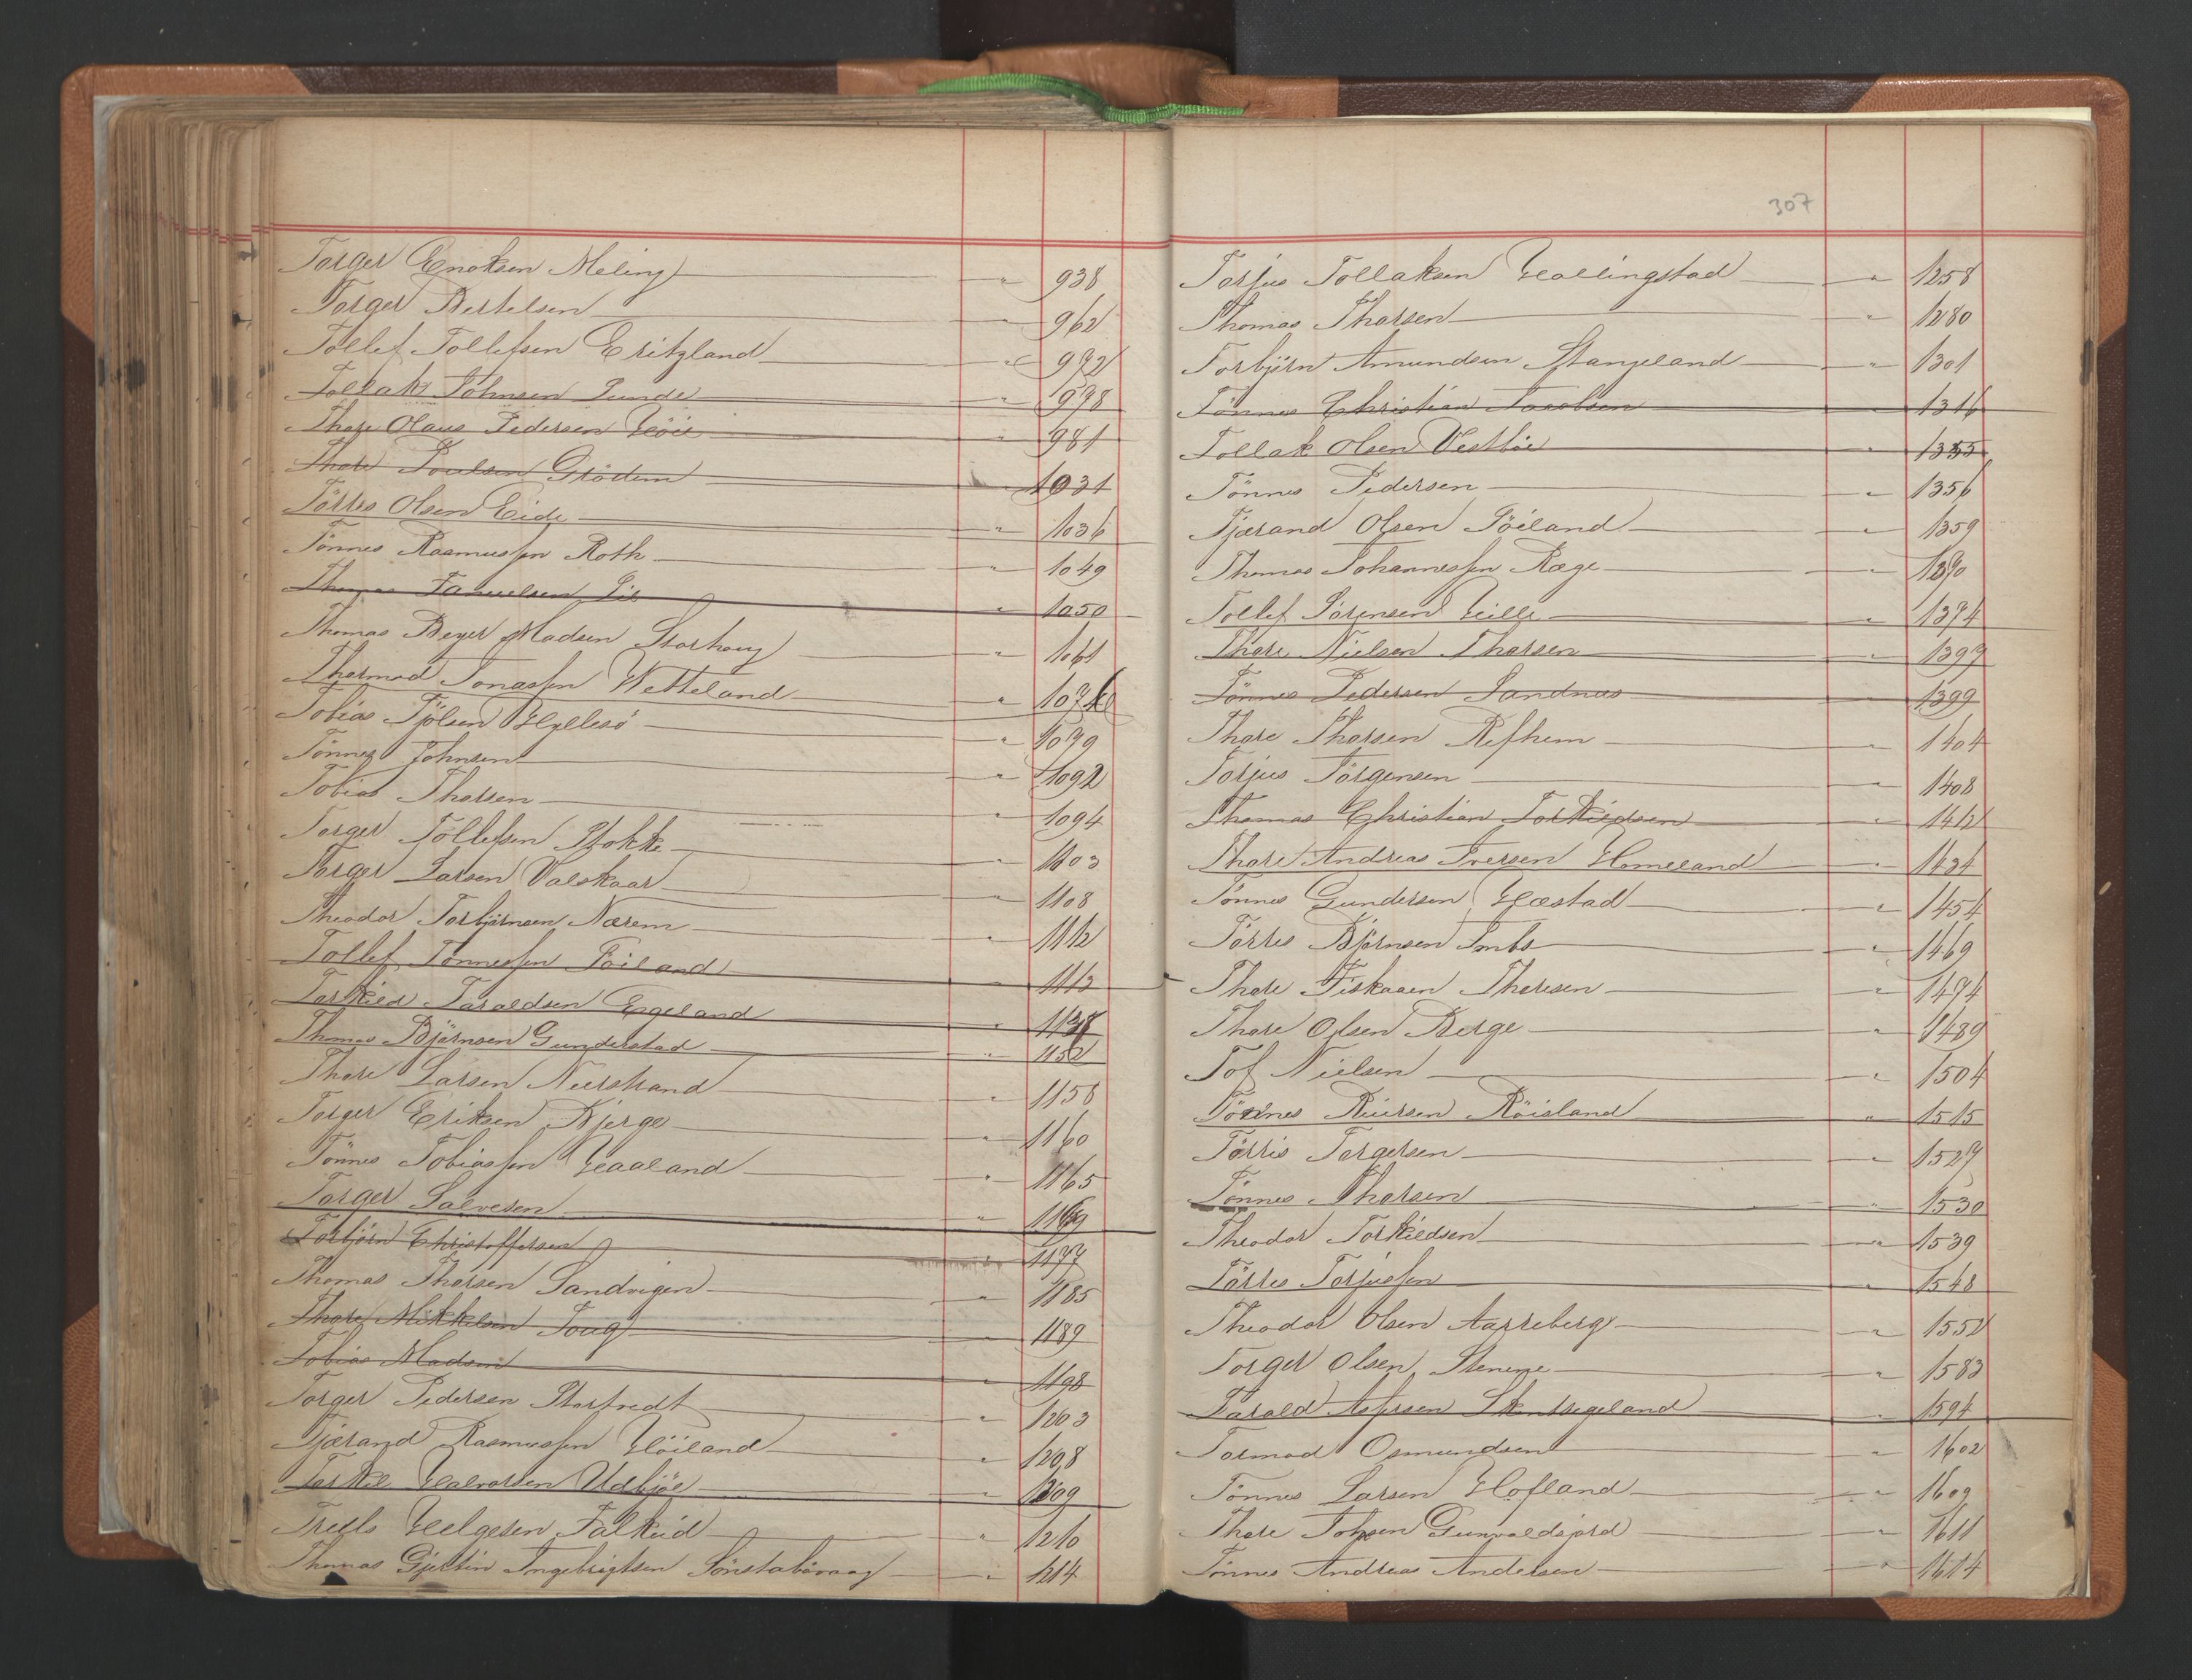 Torger Enoksen Meling " 938
Torger Bertelsen " 962
Tollef Tollefsen Eritzland " 972
Tollak Johnsen Lunde " 978
Thore Olaus Pedersen Höie " 981
Thore Poulsen Grödem " 1031
Törres Olsen Eide " 1036
Tönnes Rasmussen Roth " 1049
Thomas Samuelsen Lie " 1050
Thomas Beyer Madsen Storhoug " 1061
Thormod Jonassen Wetteland " 1074
Tobias Fjölsen Hyllesö " 1079
Tönnes Johnsen " 1092
Tobias Thorsen " 1094
Torger Tollefsen Stokke " 1103
Torger Larsen Valskaar " 1108
Theodor Torbjörnsen Nærem " 1112
Tollef Tönnessen Töiland " 1113
Torkild Taraldsen Egeland " 1138
Thomas Björnsen Gunderstad " 1152
Thore Larsen Neerstrand " 1158
Torger Eriksen Bjerge " 1160
Tönnes Tobiassen Haaland " 1165
Torger Salvesen " 1169
Torbjörn Christoffersen " 1177
Thomas Thorsen Sandvigen " 1185
Thore Mikkelsen Toug " 1189
Tobias Madsen " 1198
Torger Pedersen Stortvedt " 1203
Tjerand Rasmussen Höiland " 1208
Torkel Halvorsen Udbjöe " 1209
Tredls Helgesen Falkeid " 1210
Thomas Gjertsen Ingebrigtsen Sönstabövaag " 1214
307
Torjus Tollaksen Hallingstad " 1258
Thomas Thorsen " 1280
Torbjörn Amundsen Stangeland " 1301
Tönnes Christian Jacobsen " 1316
Tollak Olsen Vestböe " 1335
Tönnes Pedersen " 1356
Tjerand Olsen Töiland " 1359
Thomas Johannessen Ræge " 1370
Tollef Sörensen Hille " 1374
Thore Nielsen Thorsen " 1397
Tönnes Pedersen Sandnæs " 1399
Thore Thorsen Refhem " 1404
Torjus Jörgensen " 1408
Thomas Christian Torkildsen " 1412
Thore Andreas Iversen Homeland " 1434
Tönnes Gundersen Hæstad " 1454
Törres Björnsen Imbs " 1469
Thore Fiskaaen Thoresen " 1474
Thore Olsen Berge " 1489
Tof Nielsen " 1504
Tönnes Reiersen Röisland " 1515
Törris Torgersen " 1527
Tönnes Thorsen " 1530
Theodor Torkildsen " 1539
Törres Torjussen " 1548
Theodor Olsen Aarreberg " 1552
Torger Olsen Stenene " 1583
Tarald Asersen Skontsegeland " 1594
Tormod Osmundsen " 1602
Tönnes Larsen Hofland " 1609
Thore Johsen Gunvaldsjord " 1611
Tönnes Andreas Andersen " 1614